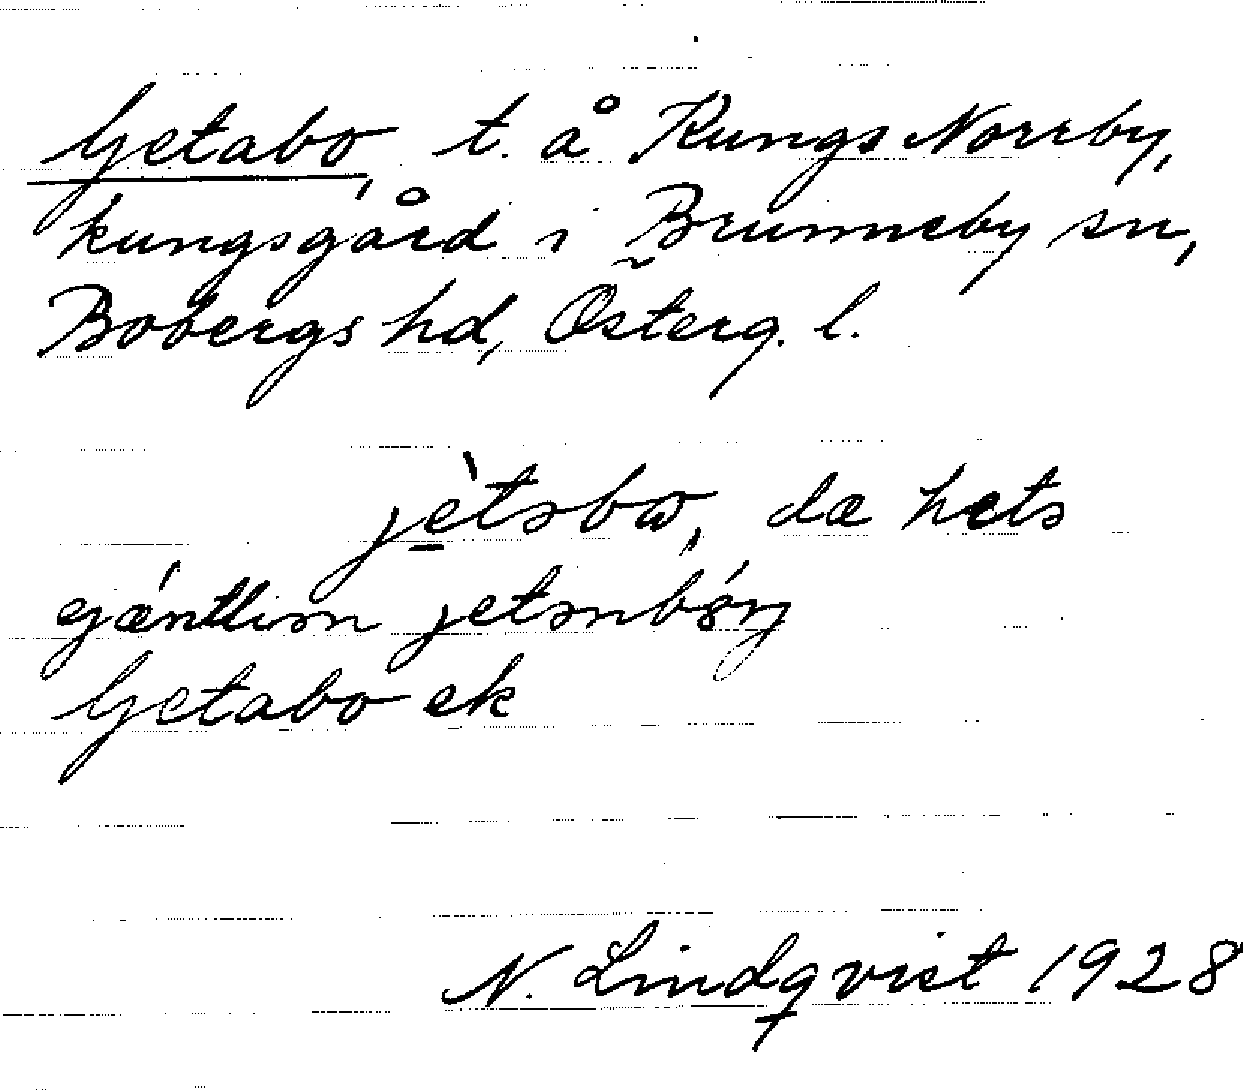 Getabo, t. å Kungs Norrby,
kungsgård i Brunneby sn,
Bobergs hd, Österg. l.
jètsbω, dæ hets
Getabo ek
N. Lindqvist 1928